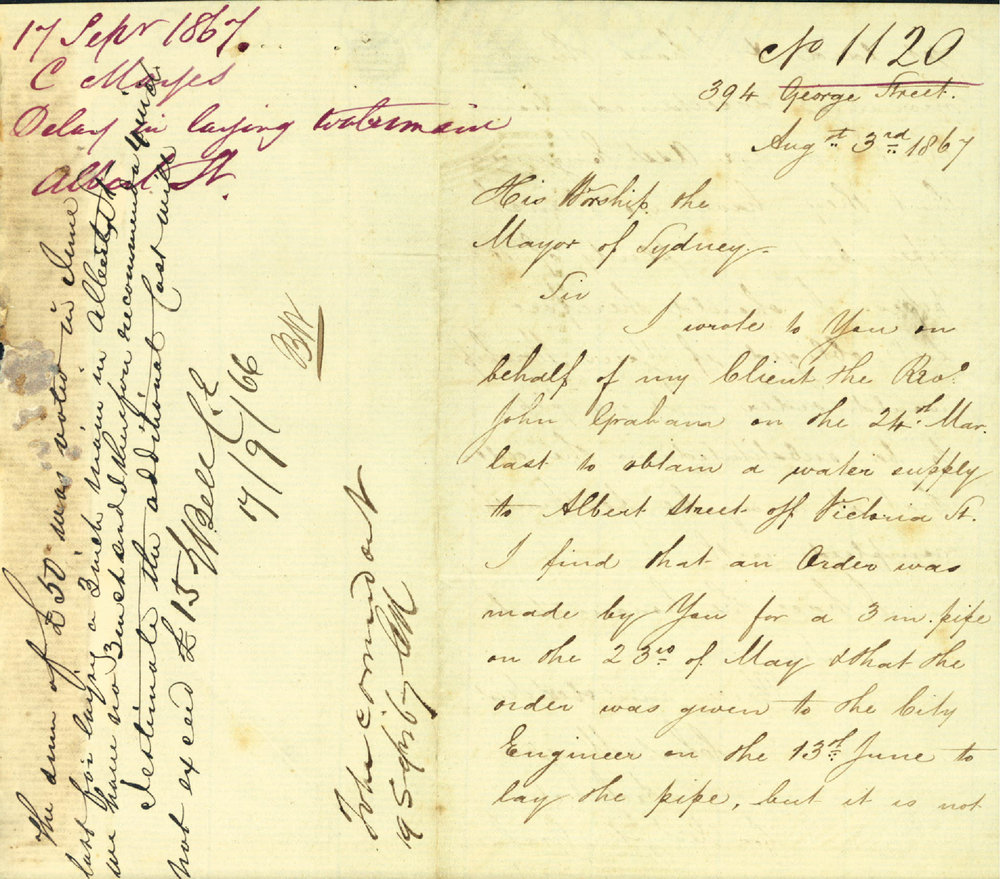 17 Sepr 1867.
C Mayes
Delay in laying watermain
Albert St.
The sum of £50 was voted in June
last for laying a 3 inch main in Albert St
we have no 3 inch and I therefore recommend a 4 inch
I estimate the additional Cost will
not exceed £15
W Bell C.E
17/9/66
BW
To be carried out
19 Sept 67
No 1120
394 George Street.
Augst 3rd 1867
His Worship the
Mayor of Sydney.
Sir
I wrote to You on
behalf of my Client the Revd.
John Graham on the 24th Mar.
last to obtain a water supply
to Albert Street off Victoria St.
I find that an Order was
made by You for a 3 in. pipe
on the 23rd of May & that the
order was given to the City
Engineer on the 13th June to
lay the pipe, but it is not